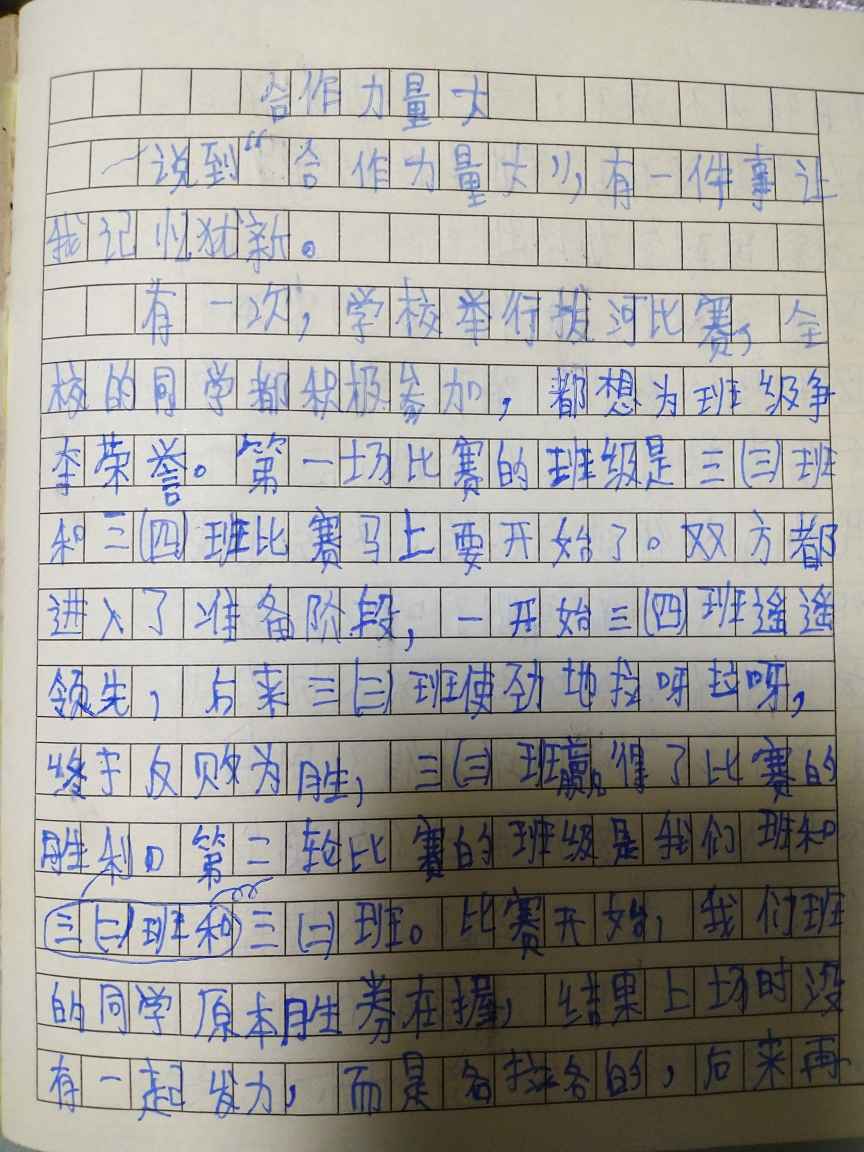 合作力量大
一说到“合作力量大”，有一件事让
我记忆犹新。
有一次，学校举行拔河比赛，全
校的同学都积极参加，都想为班级争
荣誉。第一场比赛的班级是三(三)班
和三(四)班比赛马上要开始了。双方都
进入了准备阶段，一开始三(四)班遥遥
领先，后来三(三)班使劲地拉呀拉呀，
终于反败为胜，三(三)班赢得了比赛的
胜利。第二轮比赛的班级是我们班和
三(二)班和三(二)班。比赛开始，我们班
的同学原本胜券在握，结果上场时没
有一起发力，而是各拉各的，后来再